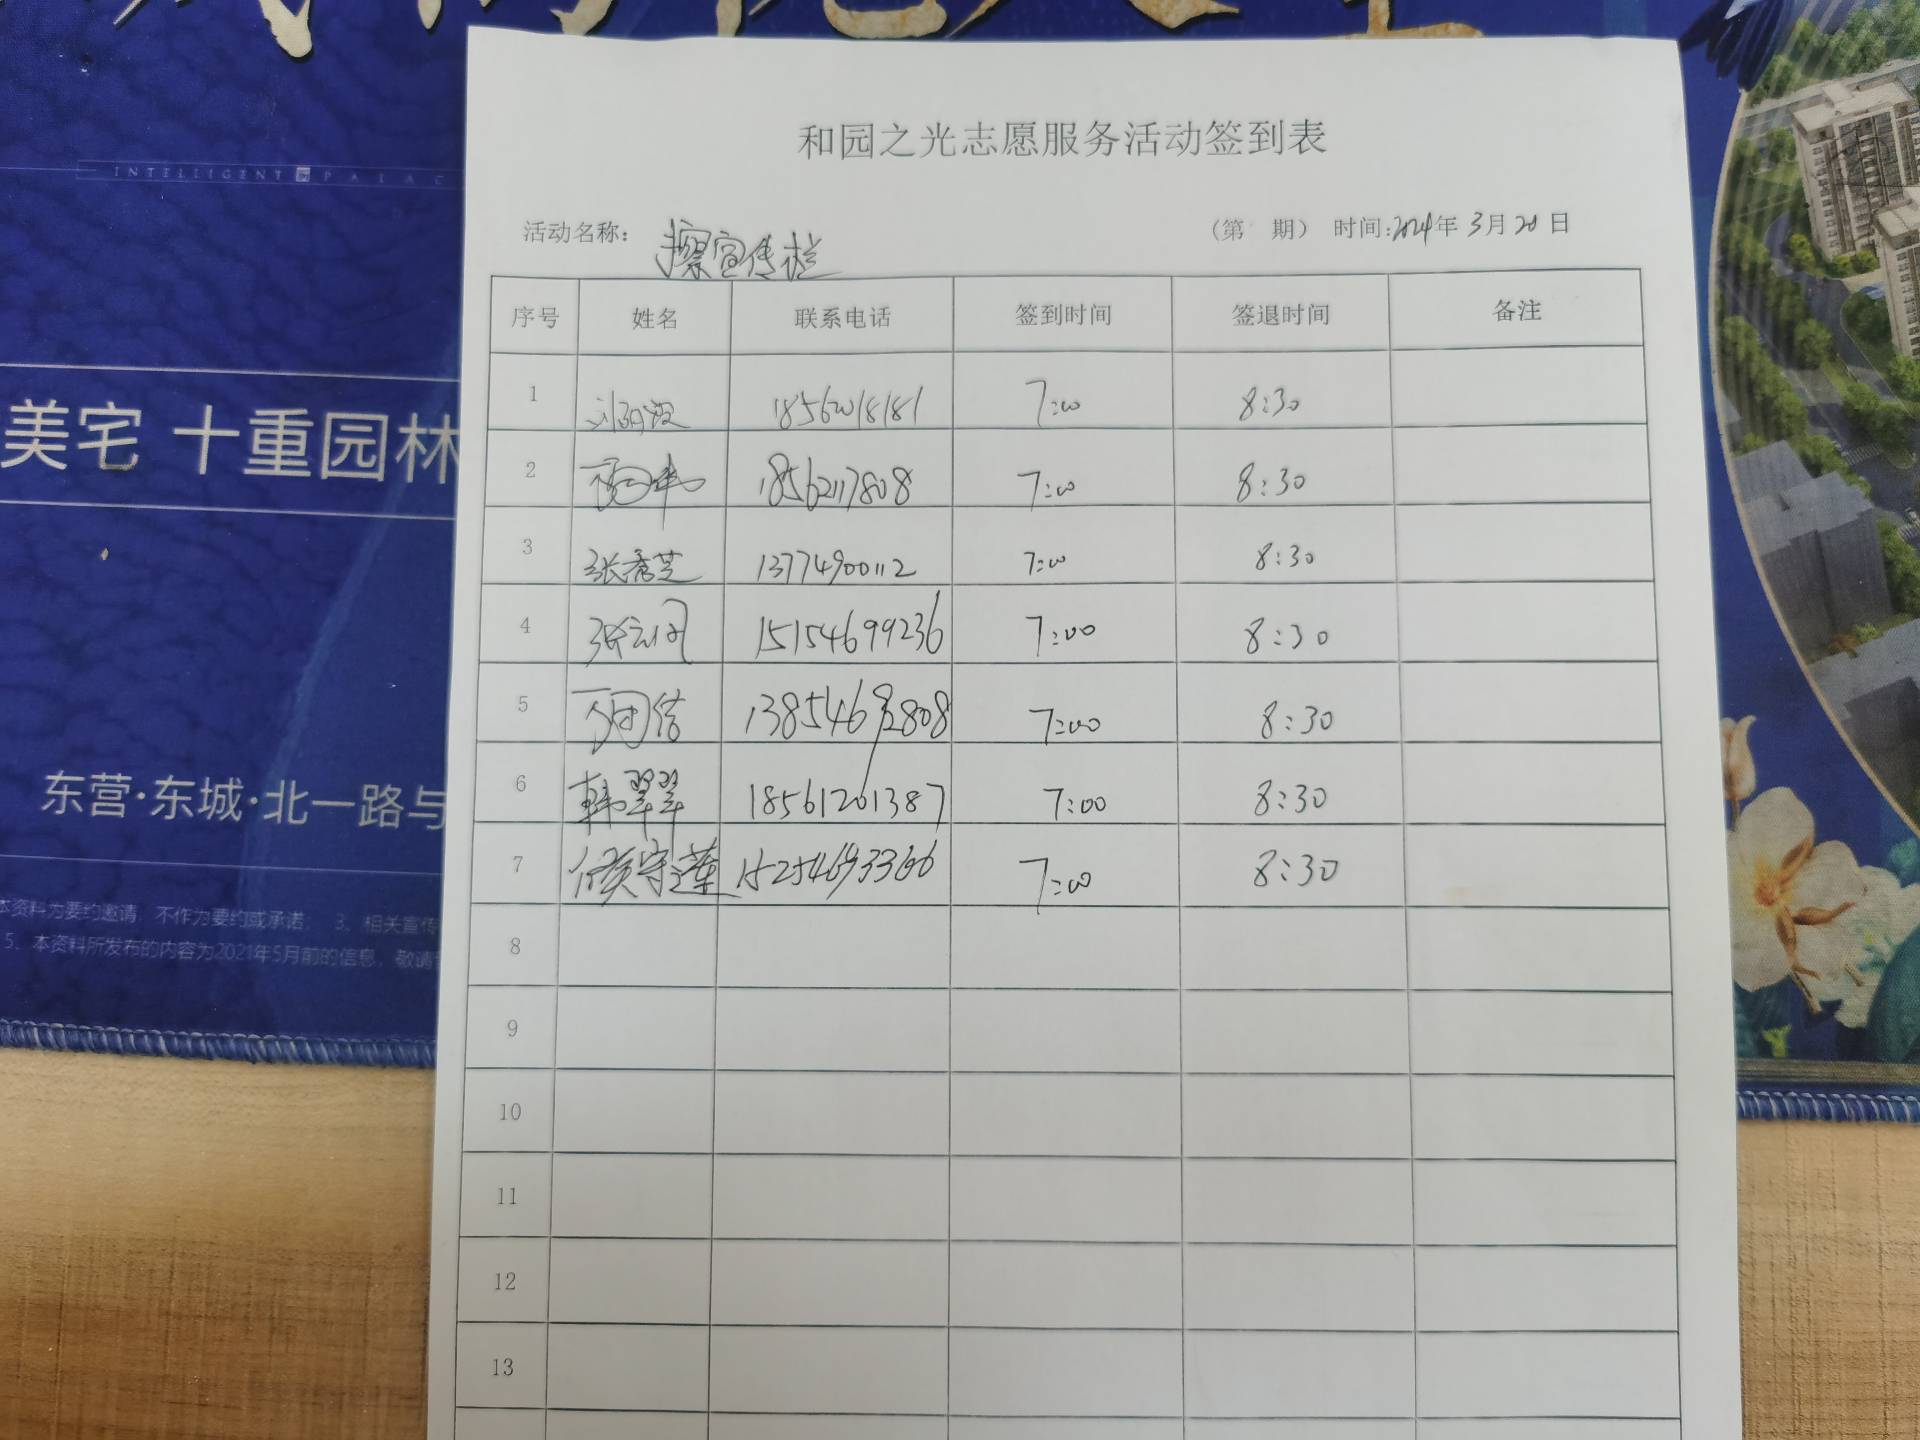 INTELLIGENT PALAC
美宅 十重园林
东营·东城·北一路与
本资料为要约邀请，不作为要约或承诺； 3、相关宣传
5、本资料所发布的内容为2021年5月前的信息，敬请
和园之光志愿服务活动签到表
活动名称： 擦宣传栏 （第 期） 时间:2024年 3月20日
序号 姓名 联系电话 签到时间 签退时间 备注
1 18562018181 7:00 8:30
2 18562117808 7:00 8:30
3 张秀芝 13774900112 7:00 8:30
4 15154699236 7:00 8:30
5 7:00 8:30
6 韩翠翠 18561201387 7:00 8:30
7 7:00 8:30
8
9
10
11
12
13